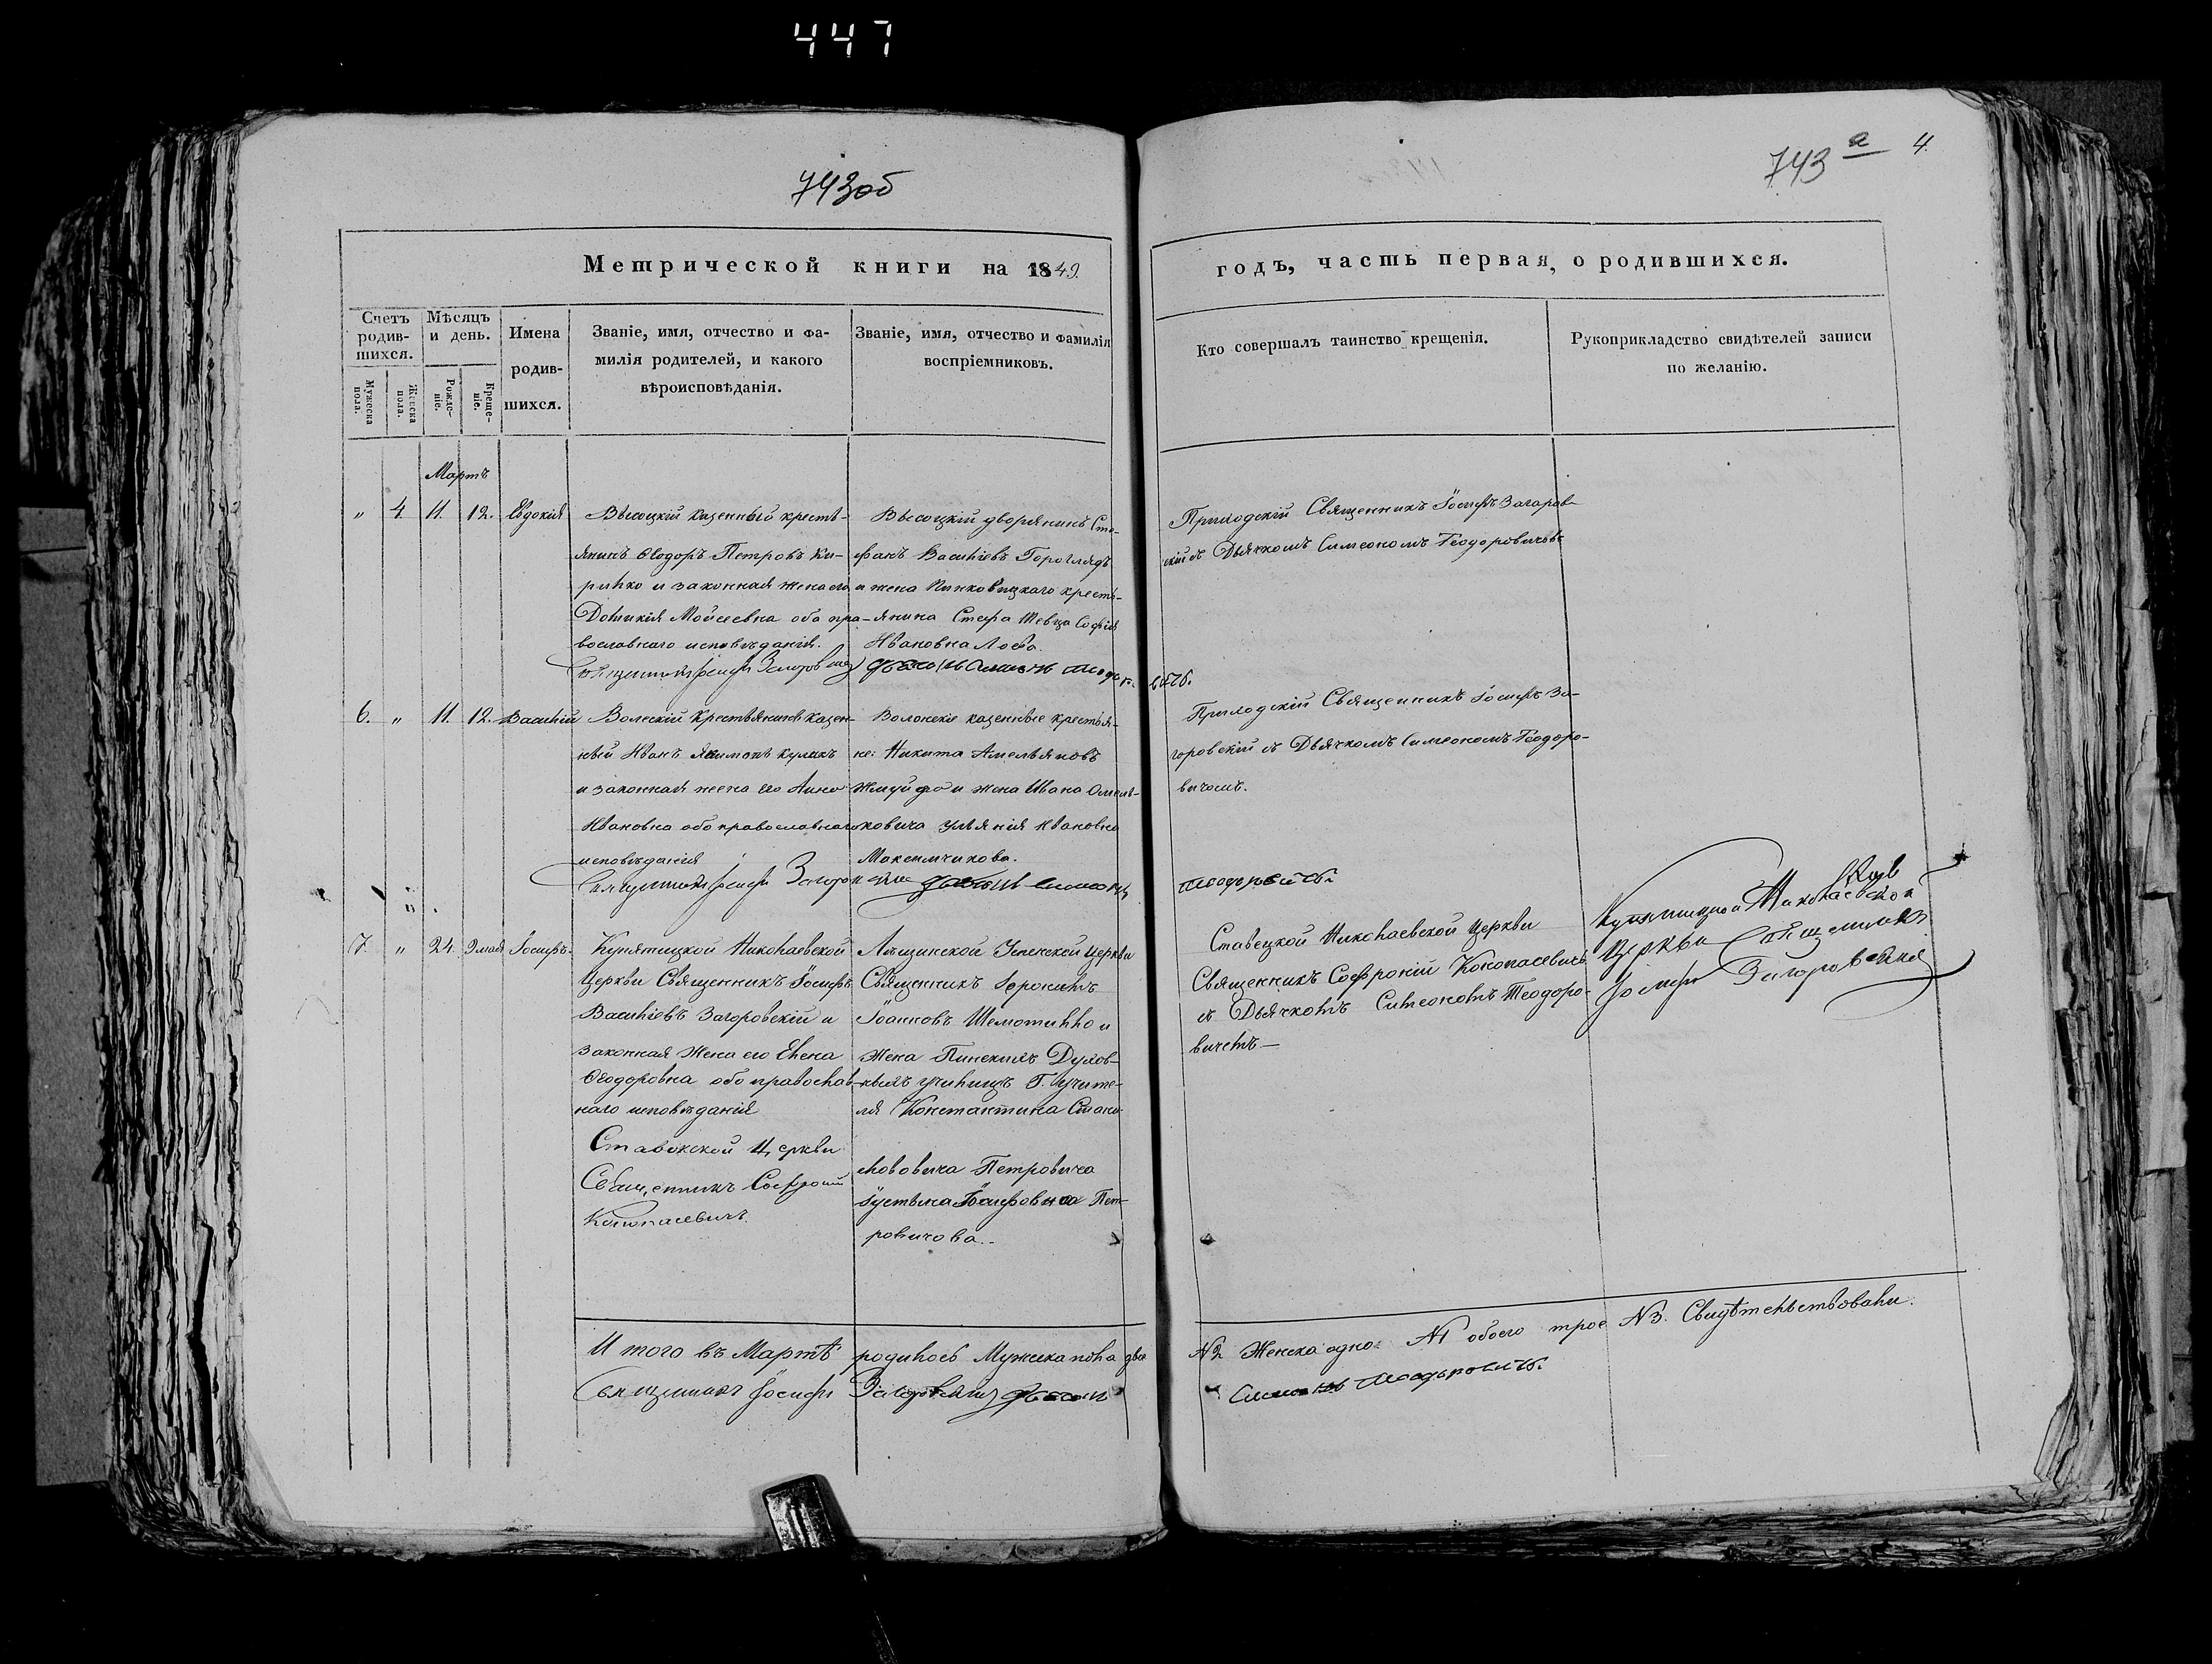 447
743об
743 а 4.
Метрической книги на 1849.
годъ, часть первая, о родившихся.
Счетъ родив-шихся.
Мѣсяцъ и день.
Имена родив-шихся.
Званіе, имя, отчество и фа-
милія родителей, и какого
вѣроисповѣданія.
Званіе, имя, отчество и фамилія
воспріемниковъ.
Кто совершалъ таинство крещенія.
Рукоприкладство свидѣтелей записи
по желанію.
Мужеска пола.
Женска пола.
Рожде-ніе.
Креще-ніе.
Мартъ
" 4 11. 12. Евдокія
Высоцкій казенный кресть-
янинъ Ѳеодоръ Петровъ Ки-
рилко и законная жена его
Домикія Мойсеевна оба пра-
вославнаго исповѣданія.
Высоцкій дворянинъ Сте-
фанъ Василіевъ Горогляд
и жена Пинковицкаго кресть-
янина Стефа Шевца Софія
Ивановна
Приходскій Священникъ Іосифъ Загоров-
скій съ Дьячкомъ Симеономъ Теодоровичемъ
Священникъ Іосифъ Загоровскій
6. " 11. 12. Василій
Волскій крестьянинъ казен-
ный Иванъ Якимовъ Куликъ
и законная жена его Анна
Ивановна оба православнаго
исповѣданія
казенные крестья-
не: Никита Амельяновъ
и жена Ивана Омель-
ковича Ульянія Ивановна
Максимчикова.
Приходскій Священникъ Іосифъ За-
горовскій съ Дьячкомъ Симеономъ Теодоро-
вичемъ.
Священникъ Іосифъ
7. " 24. 9 мая Іосифъ.
Купятицкой Николаевской
Церкви Священникъ Іосифъ
Василіевъ Загоровскій и
законная жена его Елена
Ѳеодоровна оба православ-
наго исповѣданія
Ставокской Церкви
Священникъ Софроній
Конопасевичъ.
Успенской церкви
Священникъ Іеронимъ
Іоанновъ Шеметилло и
жена Пинскихъ Духов-
ныхъ училищъ Г. учите-
ля Константина Стани-
слововича Петровича
Іустина Іосифовна Пет-
ровичова.
Ставецкой Николаевской Церкви
Священникъ Софроній Конопасевичъ
съ Дьячкомъ Симеономъ Теодоро-
вичемъ—
Купятицкой Николаевской
Церкви Священникъ
Іосифъ Загоровскій
Итого въ Мартѣ родилось Мужска пола два
N2 Женска одно N1 обоего трое N3. Свидѣтельствовали.
Священникъ Іосифъ Загоровскій